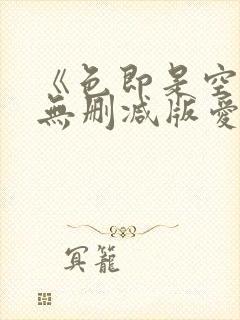 《色即是空
無删减版愛
冥籠